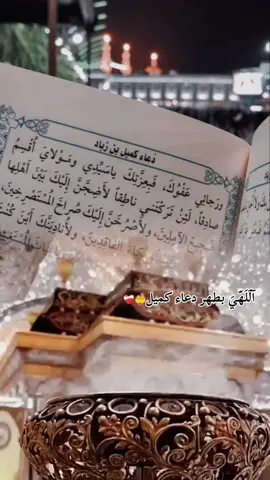 دعاء كميل بن زياد
ورجائي عفوك، فبعزتك ياسيدي ومولاي أقسم
صادقا، لئن تركتني ناطقا لأضجن إليك بين أهلها
ضجيج الآملين، ولأصرخن إليك صراخ المستصرخين،
بكاء الفاقدين، ولأنادينك أين كنت
آللهي بطهر دعاء كميل🤲❤️‍🩹